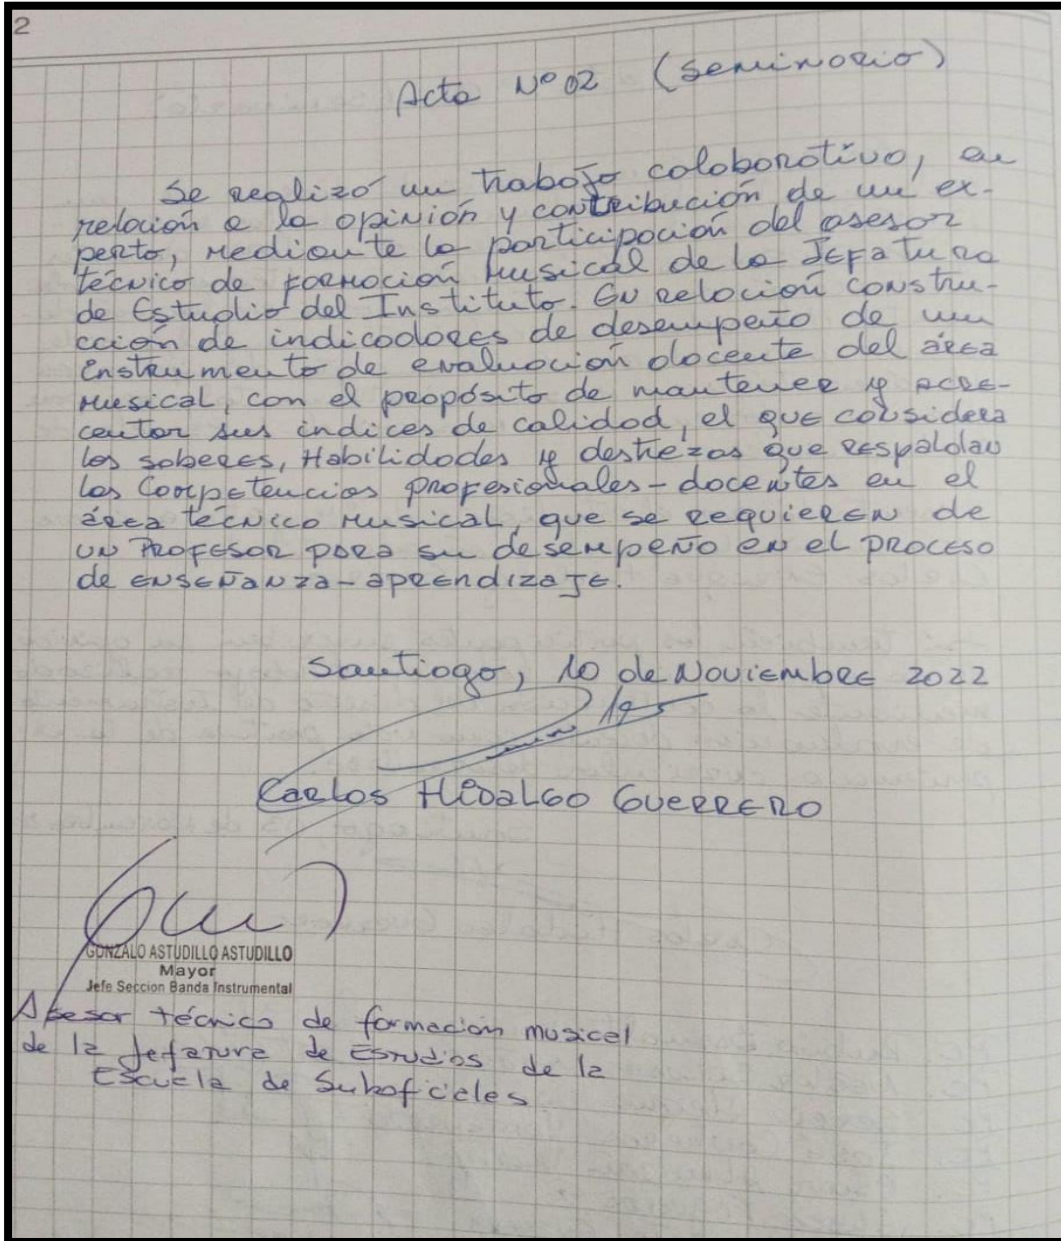 2
Acta Nº 02 (Seminario)
Se realizó un trabajo colaborativo, en
relación a la opinión y contribución de un ex-
perto, mediante la participación del asesor
técnico de formación musical de la Jefatura
de Estudio del Instituto. En relación constru-
cción de indicadores de desempeño de un
instrumento de evaluación docente del área
musical, con el propósito de mantener y acre-
centar sus indices de calidad, el que considera
los saberes, Habilidades y destrezas que respaldan
las Competencias profesionales-docentes en el
área técnico musical, que se requieren de
un Profesor para su desempeño en el proceso
de enseñanza-aprendizaje.
Santiago, 10 de Noviembre 2022
Carlos Hidalgo Guerrero
GONZALO ASTUDILLO ASTUDILLO
Mayor
Jefe Seccion Banda Instrumental
Asesor técnico de formación musical
de la Jefatura de Estudios de la
Escuela de Suboficiales